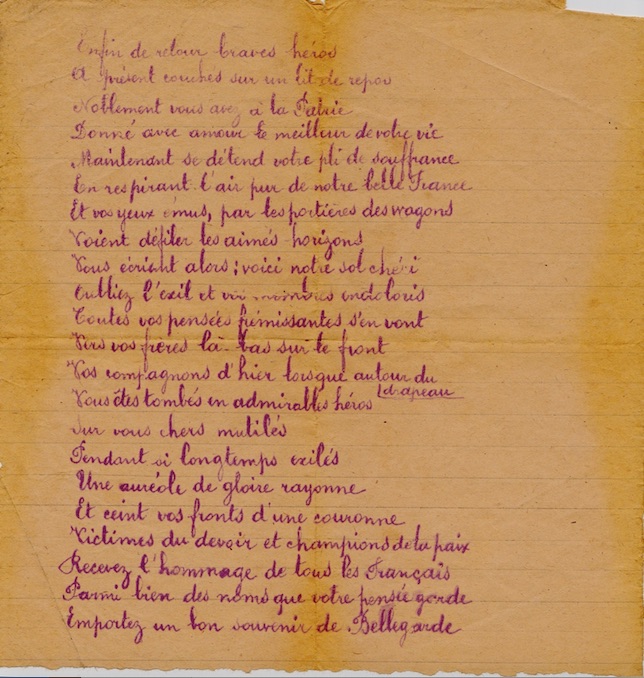 Enfin de retour braves héros
A présent couchés sur un lit de repos
Noblement vous avez à la Patrie
Donné avec amour le meilleur de votre vie
Maintenant se détend votre pli de souffrance
En respirant l'air pur de notre belle France
Et vos yeux émus, par les portières des wagons
Voient défiler les aimés horizons
Vous écriant alors ; voici notre sol chéri
Oubliez l'exil et vos membres endoloris
Toutes vos pensées frémissantes s'en vont
Vers vos frères là-bas sur le front
Vos compagnons d'hier lorsque autour du
drapeau
Vous êtes tombés en admirables héros
Sur vous chers mutilés
Pendant si longtemps exilés
Une auréole de gloire rayonne
Et ceint vos fronts d'une couronne
Victimes du devoir et champions de la paix
Recevez l'hommage de tous les Français
Parmi bien des noms que votre pensée garde
Emportez un bon souvenir de Bellegarde